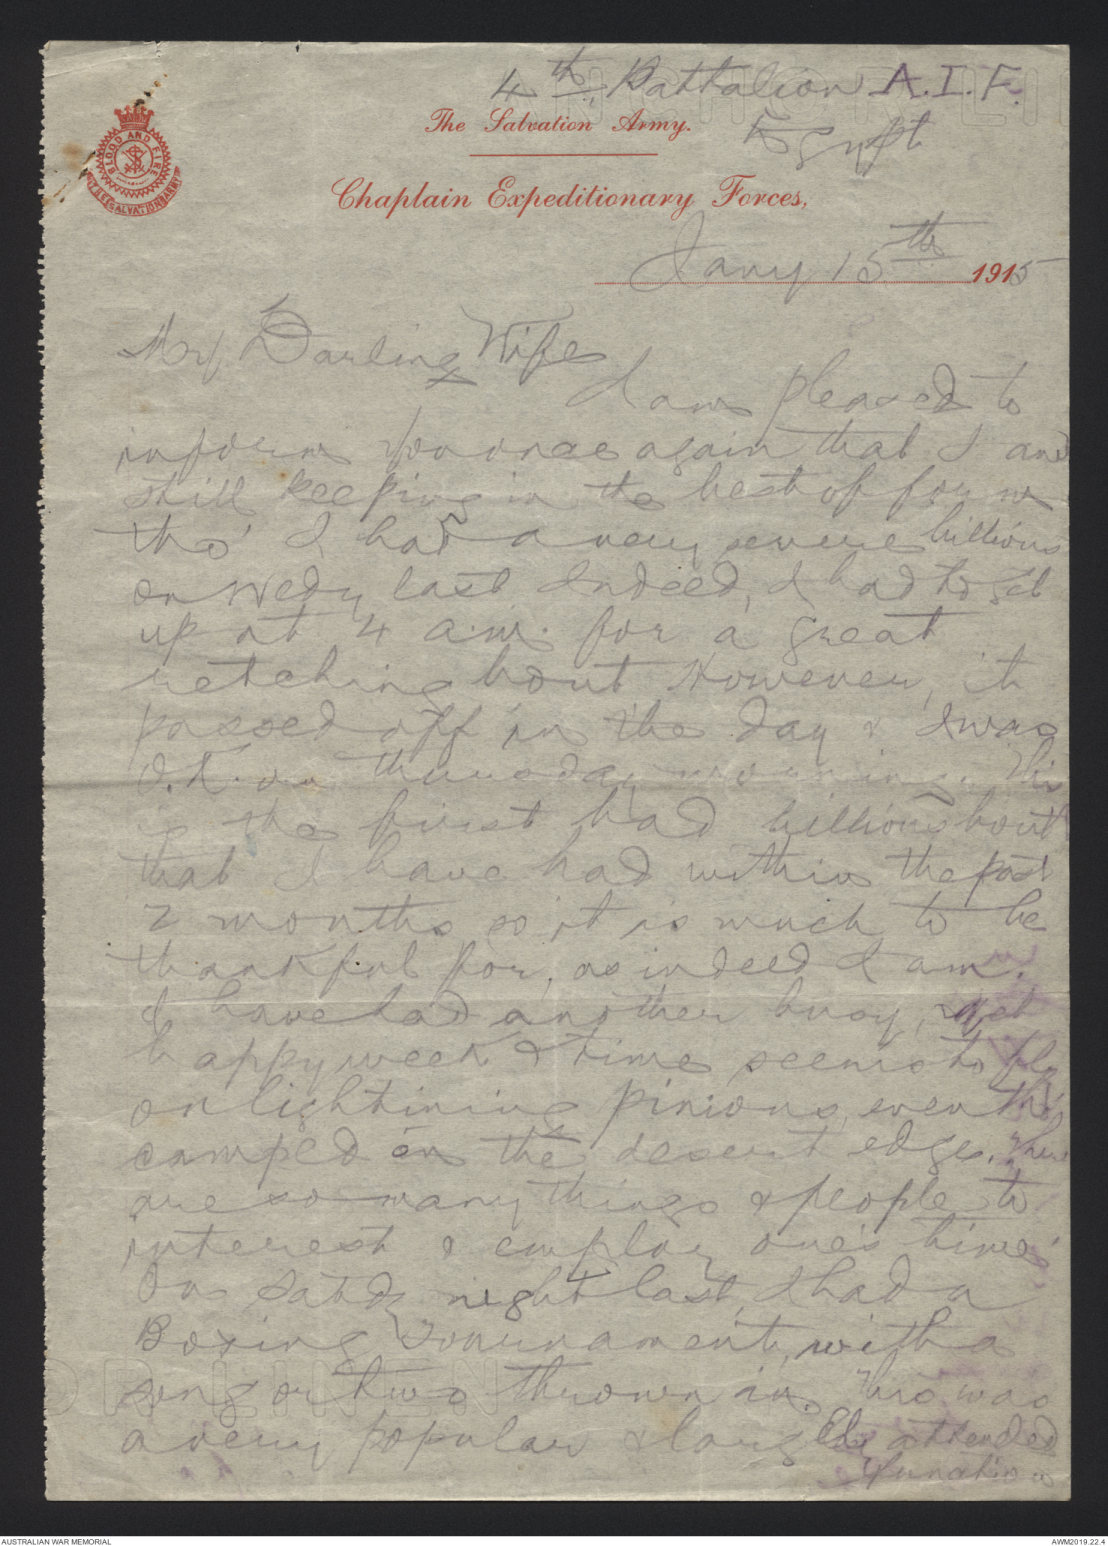 4th Battalion A.I.F.
The Salvation Army.
Egypt
BLOOD AND FIRE
THE SALVATION ARMY
Chaplain Expeditionary Forces,
Jany 15th 1915
My Darling Wife
I am pleased to
inform you once again that I am
still keeping in the best of form
tho' I had a very severe billious
on Wedy last Indeed, I had to get
up at 4 a.m. for a great
retching bout However, it
passed off in the day & I was
O.K. on thursday morning. This
is the first bad billious bout
that I have had within the past
2 months so it is much to be
thankful for, as indeed I am.
I have had another busy, yet
happy week & time seems to fly
on lightining pinions, even tho'
camped on the desert edge. There
are so many things & people to
interest & employ one's time.
On Satdy night last, I had a
Boxing Tournament, with a
song or two thrown in. This was
a very popular & largely attended
function
AUSTRALIAN WAR MEMORIAL
AWM2019.22.4